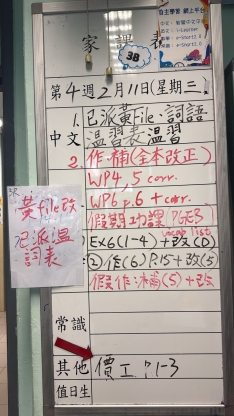 家課表
自主學習 網上平台
3B
第4週 2月11日(星期三)
1. 已派黃File:詞語
中文 溫習表溫習
2. 作.補(全本改正)
WP4,5 corr.
WP6 p.6 + corr.
假期功課 PGEB
Ex6(1-4) + 改(D)
② 作(6) P.15 + 改(5)
(5) + 改
常識
其他 價工 P.1-3
值日生
黃file改
已派溫
詞表